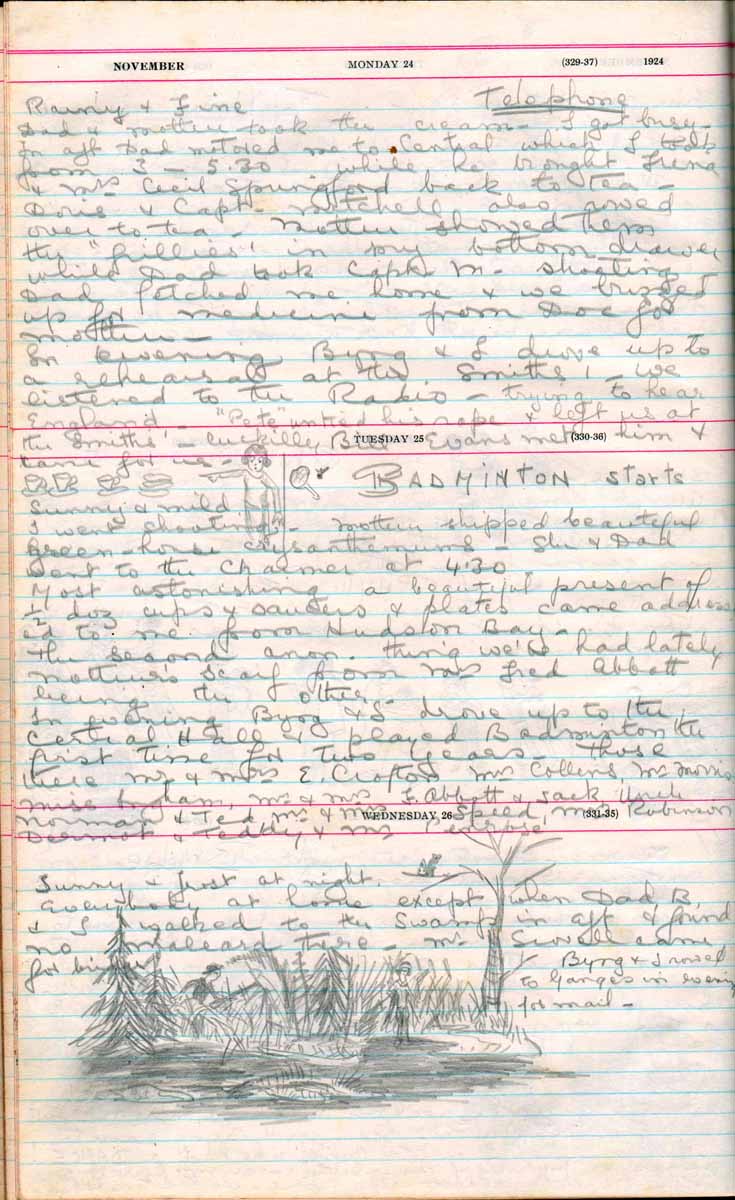 NOVEMBER MONDAY 24 (329-37) 1924
Rainy & Fine Telephone
Dad & mother took the cream - I got busy -
In aft Dad motored me to Central which I took
from 3 - 5.30 while he brought
& Mrs Cecil Springford back to tea -
Doris & Capt. Mitchell also rowed
over to tea - Mother showed them
the "frillies" in my bottom drawer
while Dad took Capt. M - shooting
Dad fetched me home & we buzzed
up for medicine from Doc for
mother -
In evening Byrg & I drove up to
a rehearsal at the Smiths' - we
listened to the Radio - trying to hear
England - "Pete" untied his rope & left us at
the Smiths' - luckilly Bill Evans met him &
came for us -
TUESDAY 25 (330-36)
BADMINTON starts
Sunny & mild
I went shooting - Mother shipped beautiful
green-house crysanthemums - She & Dad
went to the Charmer at 4.30
Most astonishing a beautiful present of
½ doz cups & saucers & plates came address
ed to me from Hudson Bay -
the second anon. thing we've had lately
mother's scarf from Mrs Fred Abbott
being the other -
In evening Byrg & I drove up to the
Central Hall & played Badminton the
first time for two years - Those
there Mr & Mrs E. Crofton Mrs Collins, Mr Morris
miss Ingham, Mr & Mrs F. Abbott & Jack Uncle
Norman & Ted, Mr & Mrs Speed, Mrs Robinson
Dermot & Teddy & Mr Penrose
WEDNESDAY 26 (331-35)
Sunny & frost at night.
Everybody at home except when Dad B.
& I walked to the Swamp in aft & found
no maleard there - Mr Scovell came
for
Byrg & I rowed
to Ganges in evening
for mail -